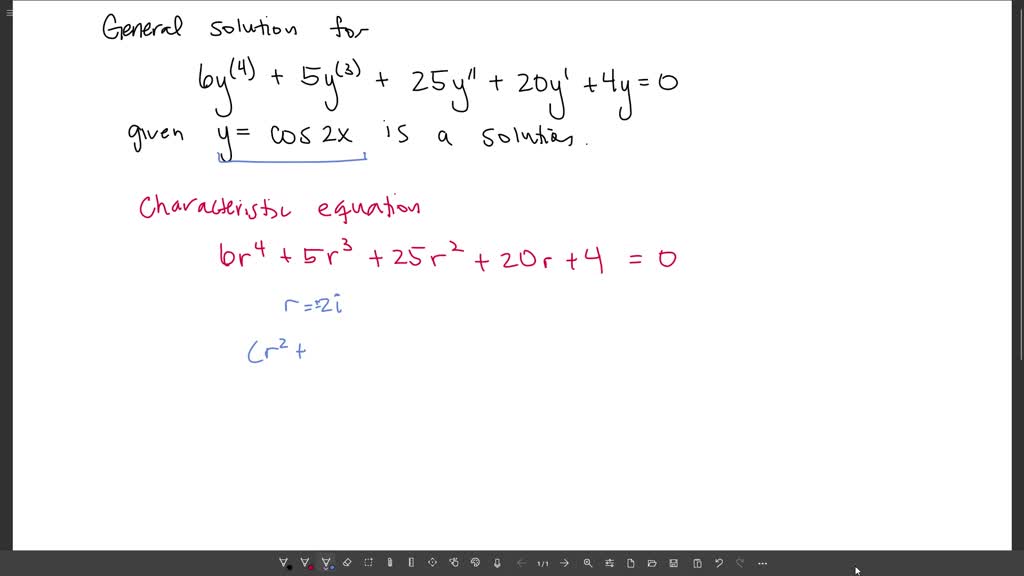 General solution for
6y⁽⁴⁾ + 5y⁽³⁾ + 25y'' + 20y' + 4y = 0
given y = cos 2x is a solution.
Characteristic equation
6r⁴ + 5r³ + 25r² + 20r + 4 = 0
r = ±2i
(r² +
1/1